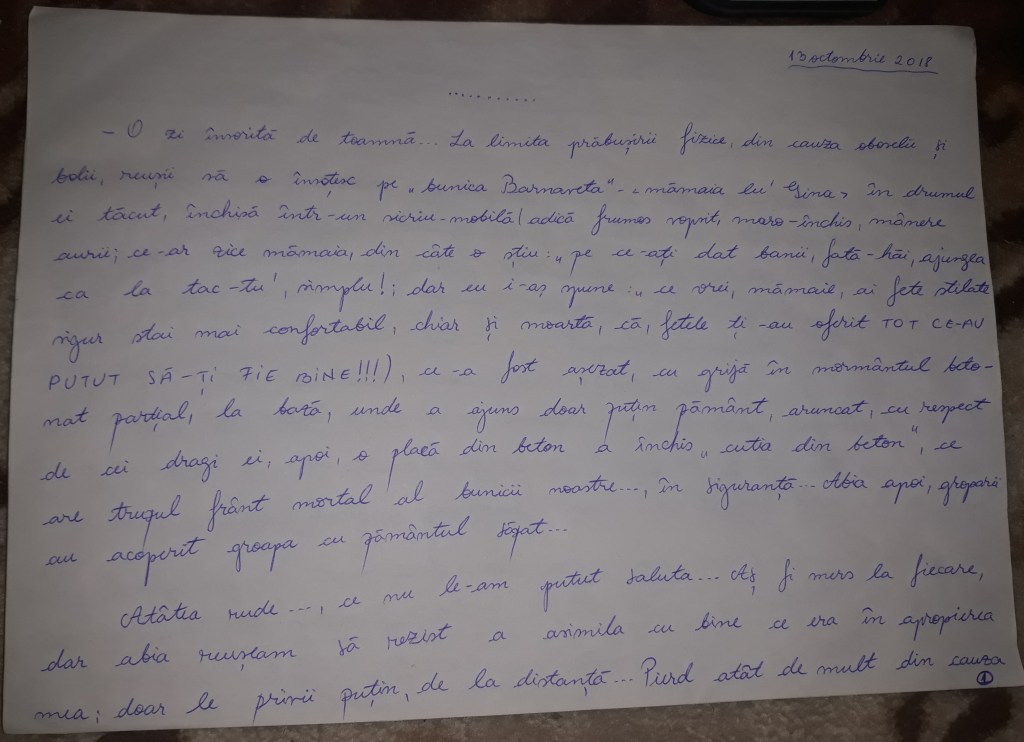 13 octombrie 2018
...........
– O zi însorită de toamnă... La limita prăbușirii fizice, din cauza oboselii și
bolii, reușii să o însoțesc pe „bunica Barnareta"- <mămaia lu' Gina> în drumul
ei tăcut, închisă într-un sicriu-mobilă (adică frumos vopsit, maro-închis, mânere
aurii; ce-ar zice mămaia, din câte o știu: „pe ce-ați dat banii, fată-hăi, ajungea
ca la tac-tu', simplu!; dar eu i-aș spune: „ce vrei, mămaie, ai fete stilate
sigur stai mai confortabil, chiar și moartă, că, fetele ți-au oferit TOT CE-AU
PUTUT SĂ-ȚI FIE BINE!!!), ce-a fost așezat, cu grijă în mormântul beto-
nat parțial, la bază, unde a ajuns doar puțin pământ, aruncat, cu respect
de cei dragi ei, apoi, o placă din beton a închis „cutia din beton", ce
are trupul frânt mortal al bunicii noastre..., în siguranță... Abia apoi, groparii
au acoperit groapa cu pământul săpat...
Atâtea rude..., ce nu le-am putut saluta... Aș fi mers la fiecare,
dar abia reușeam să rezist a asimila cu bine ce era în apropierea
mea; doar le privii puțin, de la distanță... Pierd atât de mult din cauza
1